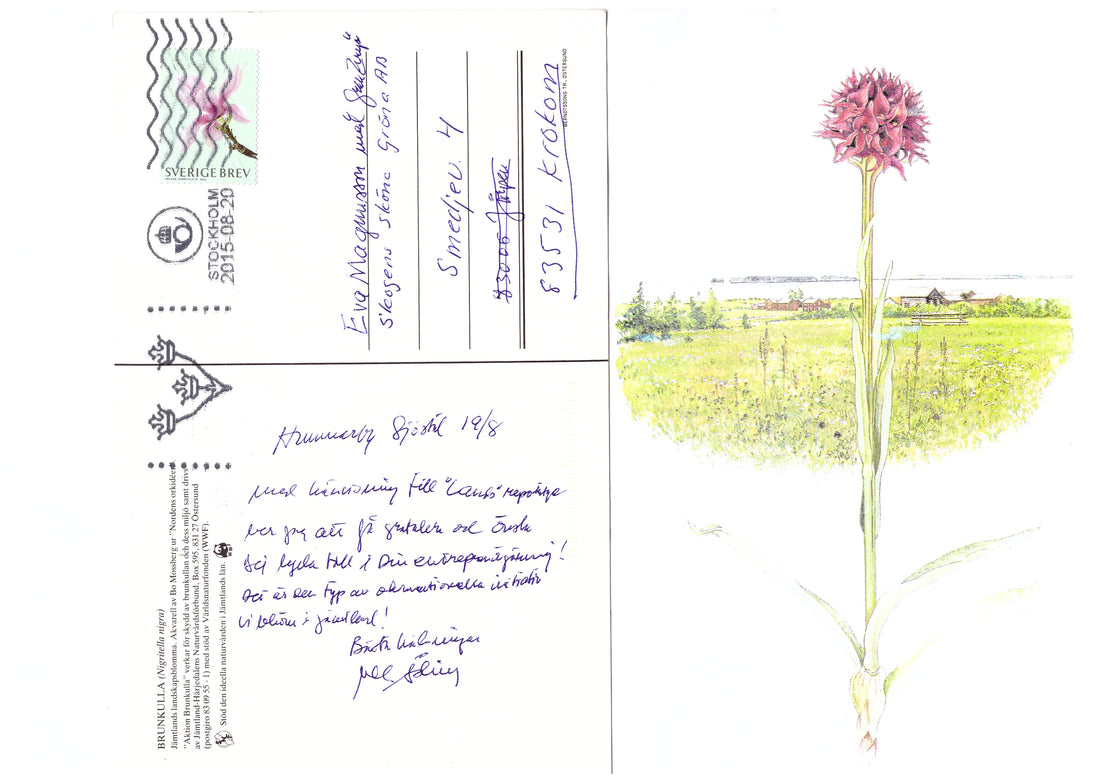 SVERIGE BREV
STOCKHOLM
2015-08-20
Eva Magnusson med
"Skogens sköna Gröna AB
Smedjev. 4
83005 Järpen
83531 Krokom
BERNDTSSONS TR., ÖSTERSUND
Hammarby Sjöstad 19/8
Med hänvisning till "Lands" reportage
ber jag att få gratulera och önska
Dej lycka till i Din entreprenörgärning!
Det är den typ av okonventionella initiativ
vi behöver i Jämtland!
Bästa hälsningar
BRUNKULLA (Nigritella nigra)
Jämtlands landskapsblomma. Akvarell av Bo Mossberg ur "Nordens orkidéer".
"Aktion Brunkulla" verkar för skydd av brunkullan och dess miljö samt drivs
av Jämtland-Härjedalens Naturvårdsförbund, Box 595, 831 27 Östersund
(postgiro 83 09 55 - 1) med stöd av Världsnaturfonden (WWF).
Stöd den ideella naturvården i Jämtlands län.